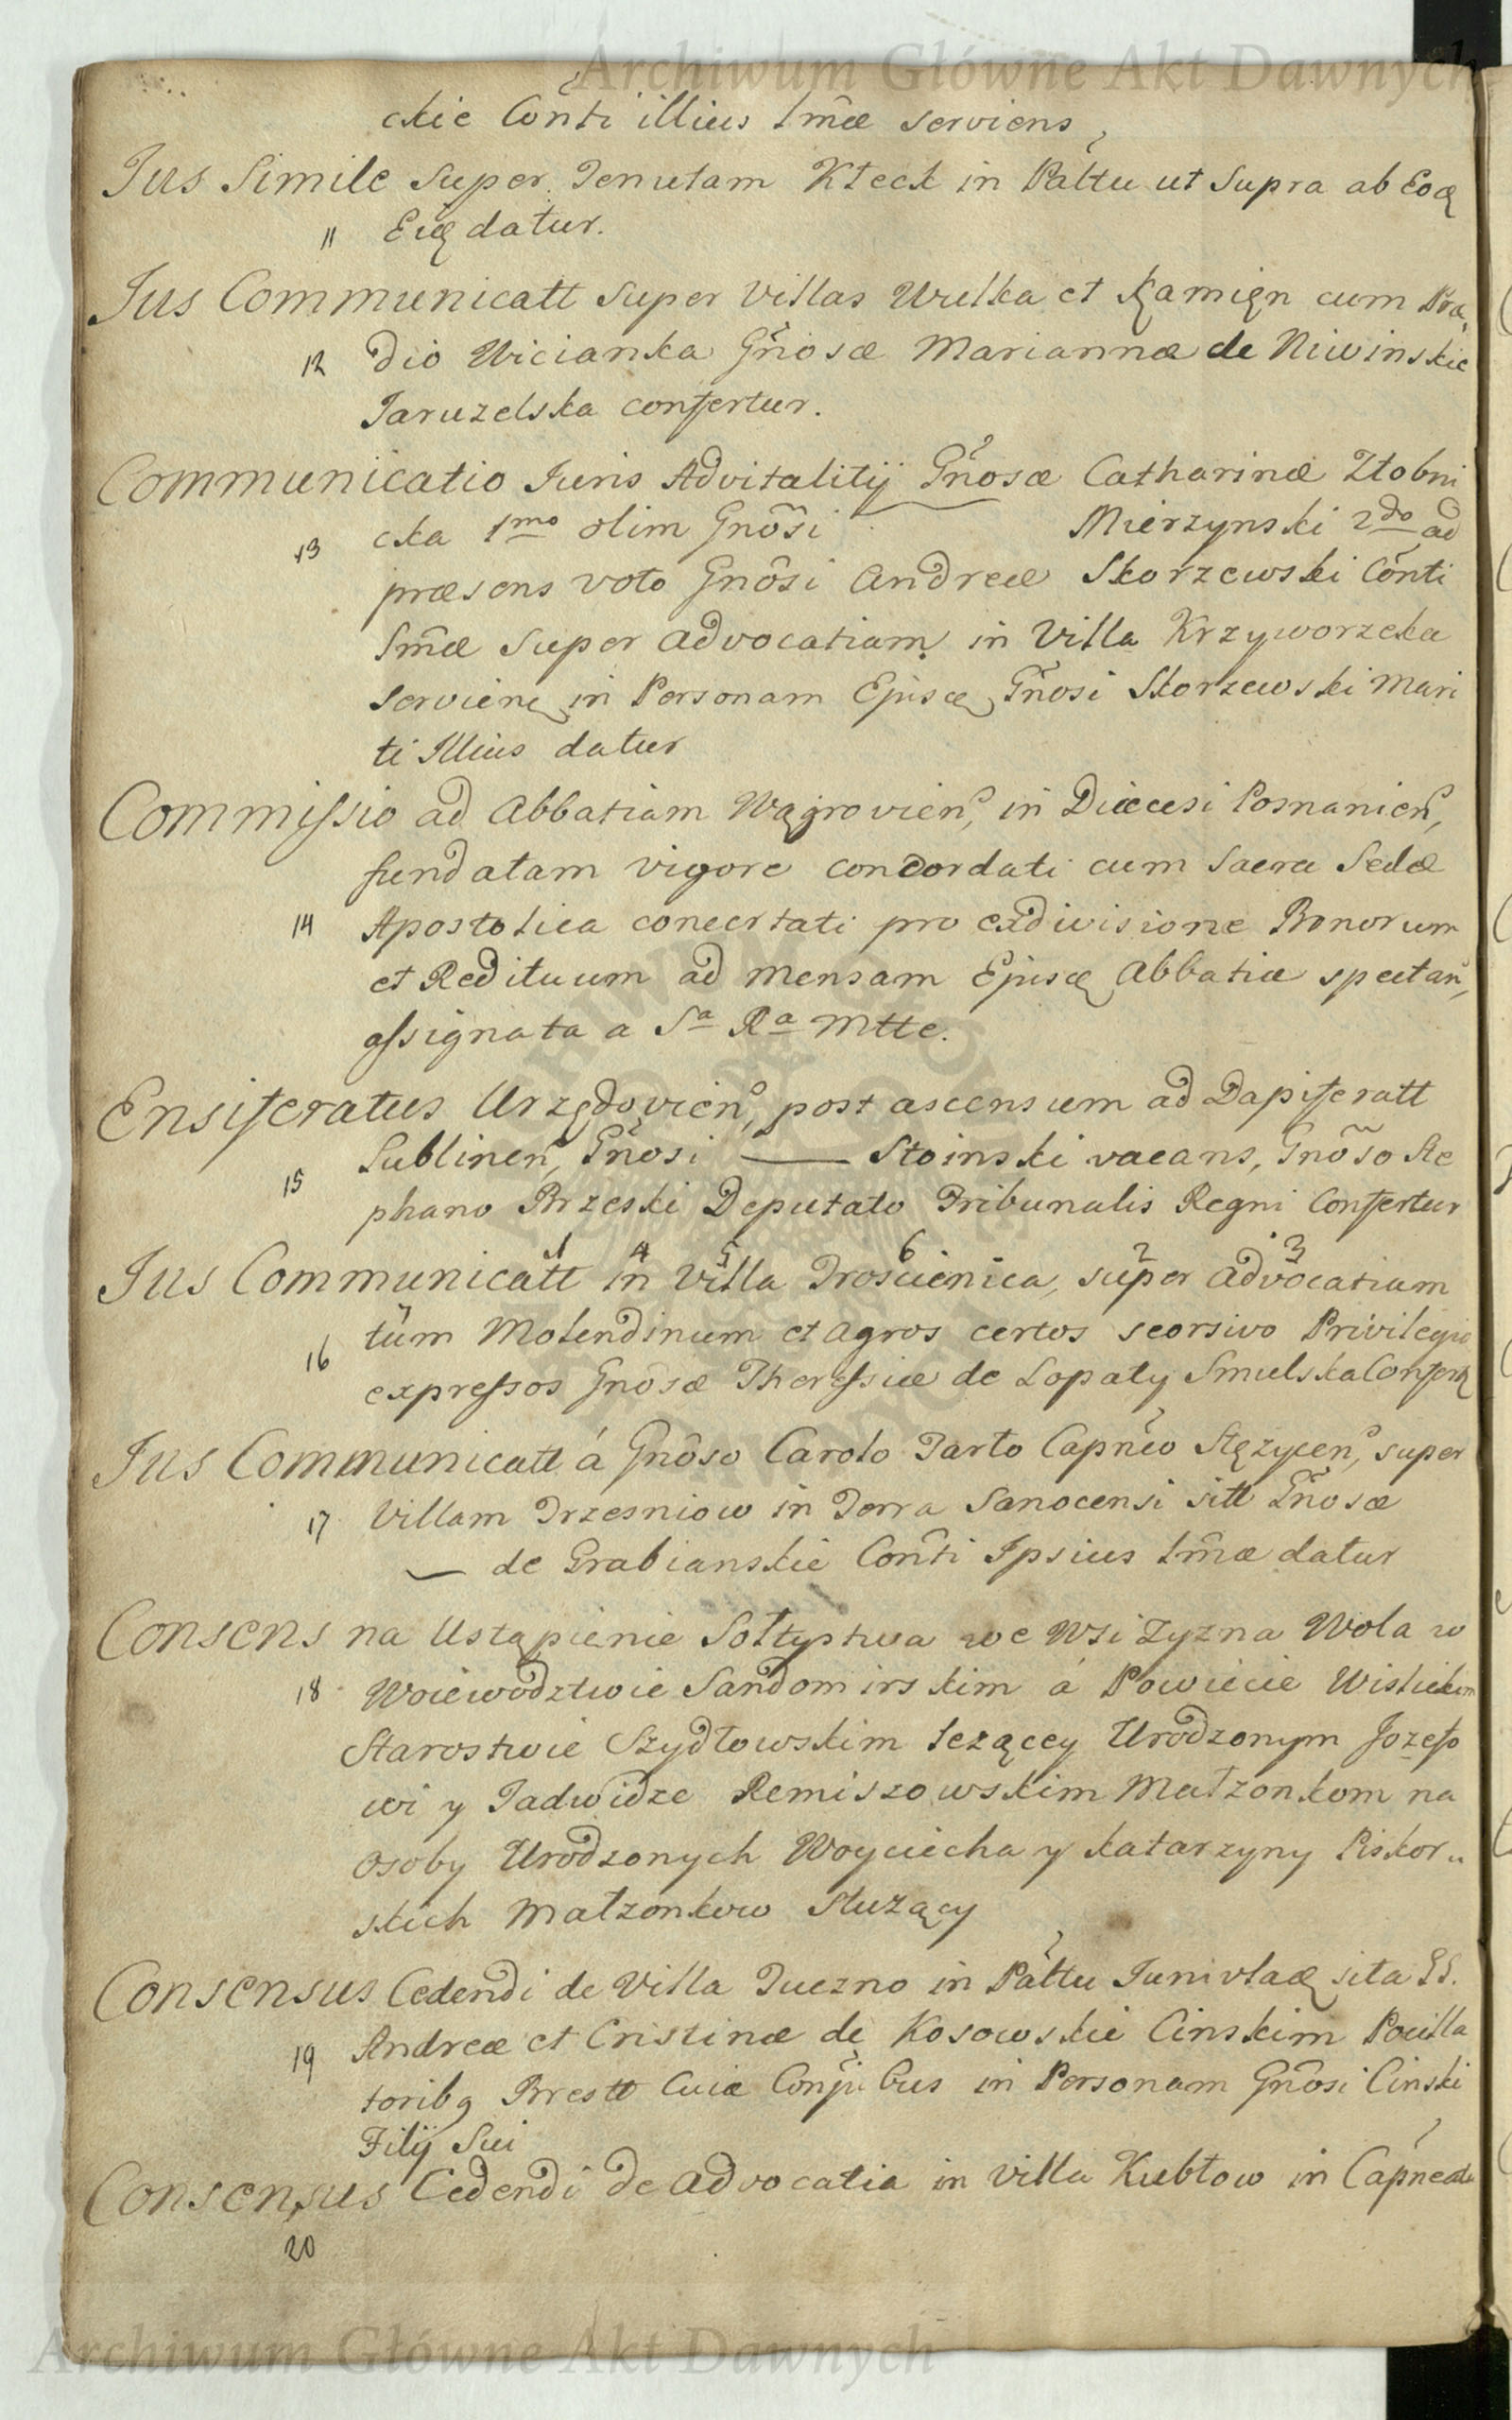 Archiwum Główne Akt Dawnych
ckie Conti illius Imæ serviens
Jus Simile super Tenutam Kleck in Pałtu ut Supra ab Eoq
11 Eiq datur.
Jus Communicatt super Villas Wulka et Kamięn cum Præ
12 dio Wicianka Gnosæ Mariannæ de Niwinskie
Jaruzelska confertur.
Communicatio Juris Advitalitÿ Gnosæ Catharinæ Złobni
13 cka 1mo olim Gnosi Mierzynski 2do ad
præsens voto Gnosi Andreæ Skorzewski Conti
Imæ super Advocatiam in Villa Krzyworzeka
servienę in Personam Ejusdę Gnosi Skorzewski Mari
ti Illius datur
Commissio ad Abbatiam Wągrovien, in Diæcesi Posnanien,
fundatam vigore concordati cum Sacra Sedæ
14 Apostolica concertati pro exdivisione Bonorum
et Redituum ad mensam Ejusdę Abbatiæ spectan,
assignata a Sa Ra Mtte.
Ensiferatus Urzędovien, post ascensum ad Dapiferatt
15 Lublinen, Gnosi — Stoinski vacans, Gnoso Ste
phano Brzeski Deputato Tribunalis Regni Confertur
Jus Communicatt 1 in 4 Villa 5 Troscienica, 6 super 2 Advocatium 3
16 tum Molendinum et Agros certos seorsivo Privilegio
expressos Gnosæ Theressiæ de Lopaty Smulska Confertq
Jus Communicatt á Gnoso Carolo Tarło Capneo Stęzycen, super
17 Villam Trzesniow in Terra Sanocensi sitt Gnosæ
— de Grabianskie Conti Ipsius Imæ datur
Consens na Ustąpienie Sołtystwa we Wsi Zyzna Wola w
18 Woiewodztwie Sandomirskim á Powiecie Wislickim
Starostwie Szydłowskim lezącey Urodzonym Jozefo
wi y Jadwidze Remiszowskim Małzonkom na
osoby Urodzonych Woyciecha y Katarzyny Piskor„
skich Małzonkow Słuzący
Consensus Cedendi de Villa Tuczno in Pałtu Junivlaę sita GG.
19 Andreæ et Cristinæ de Kosowskie Cinskim Pocilla
toribq Brestt Cuiæ Conjubus in Personam Gnosi Cinski
Filÿ Sui
Consensus Cedendi de Advocatia in Villa Kubłow in Capneatu
20
Archiwum Główne Akt Dawnych